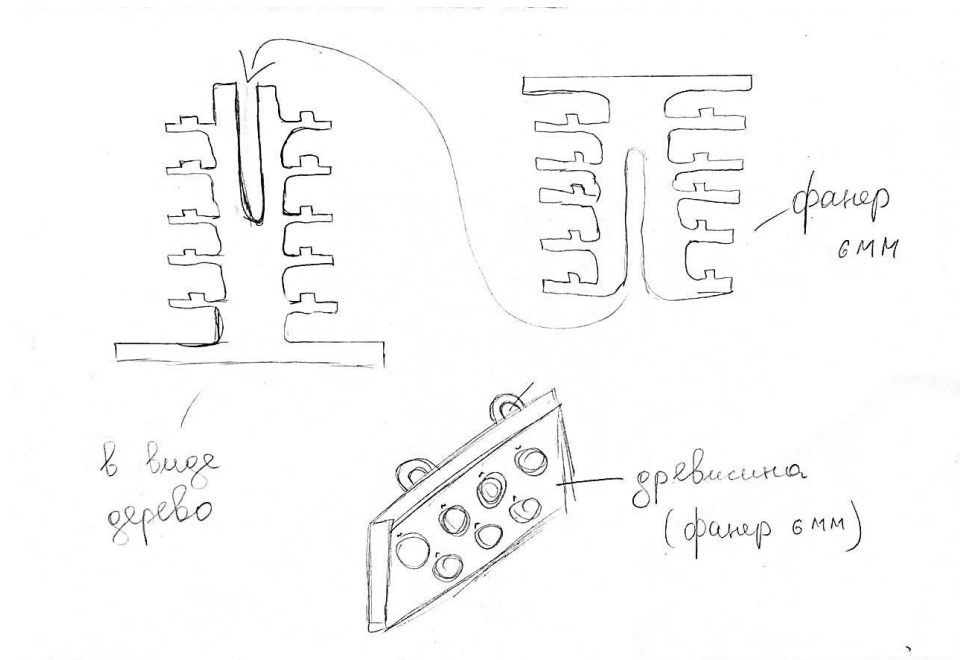 фанер
6 мм
в виде
дерево
древисина
(фанер 6 мм)